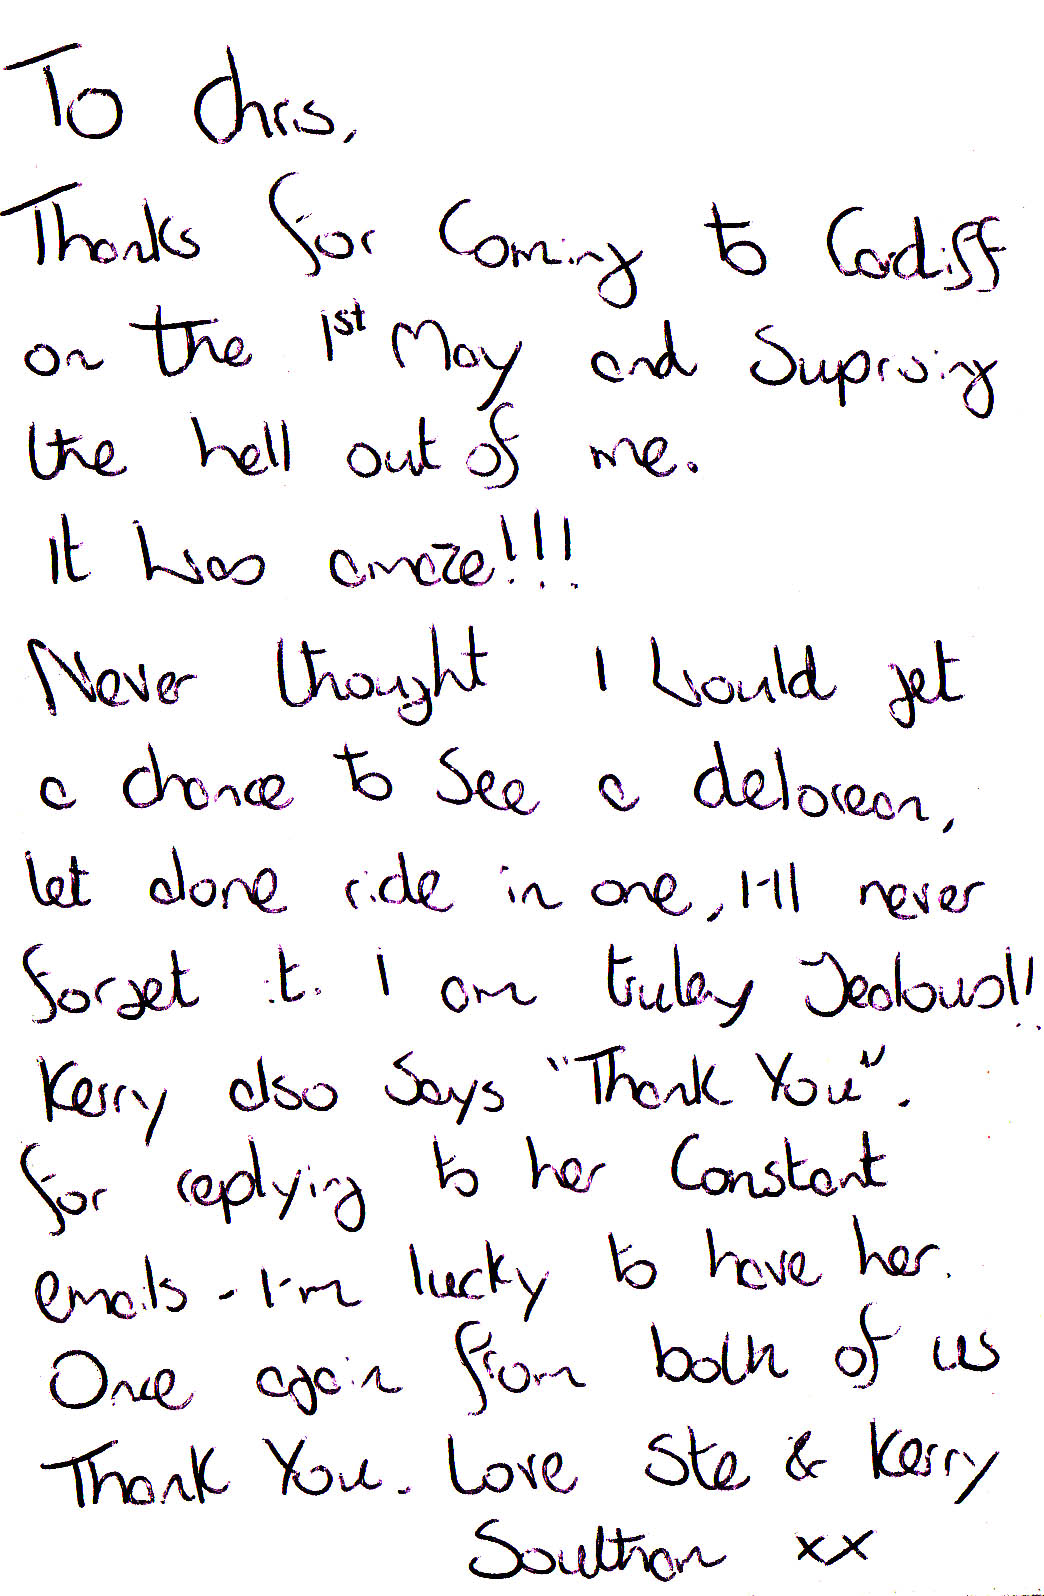 To Chris,
Thanks for Coming to Cardiff
on the 1st May and Suprising
the hell out of me.
It was amaze!!!
Never thought I would get
a chance to See a delorean,
let alone ride in one, I'll never
forget it. I am truley Jealous!!
Kerry also Says "Thank You".
for replying to her Constant
emails - I'm lucky to have her.
Once again from both of us
Thank You. Love Ste & Kerry
Soulthan xx